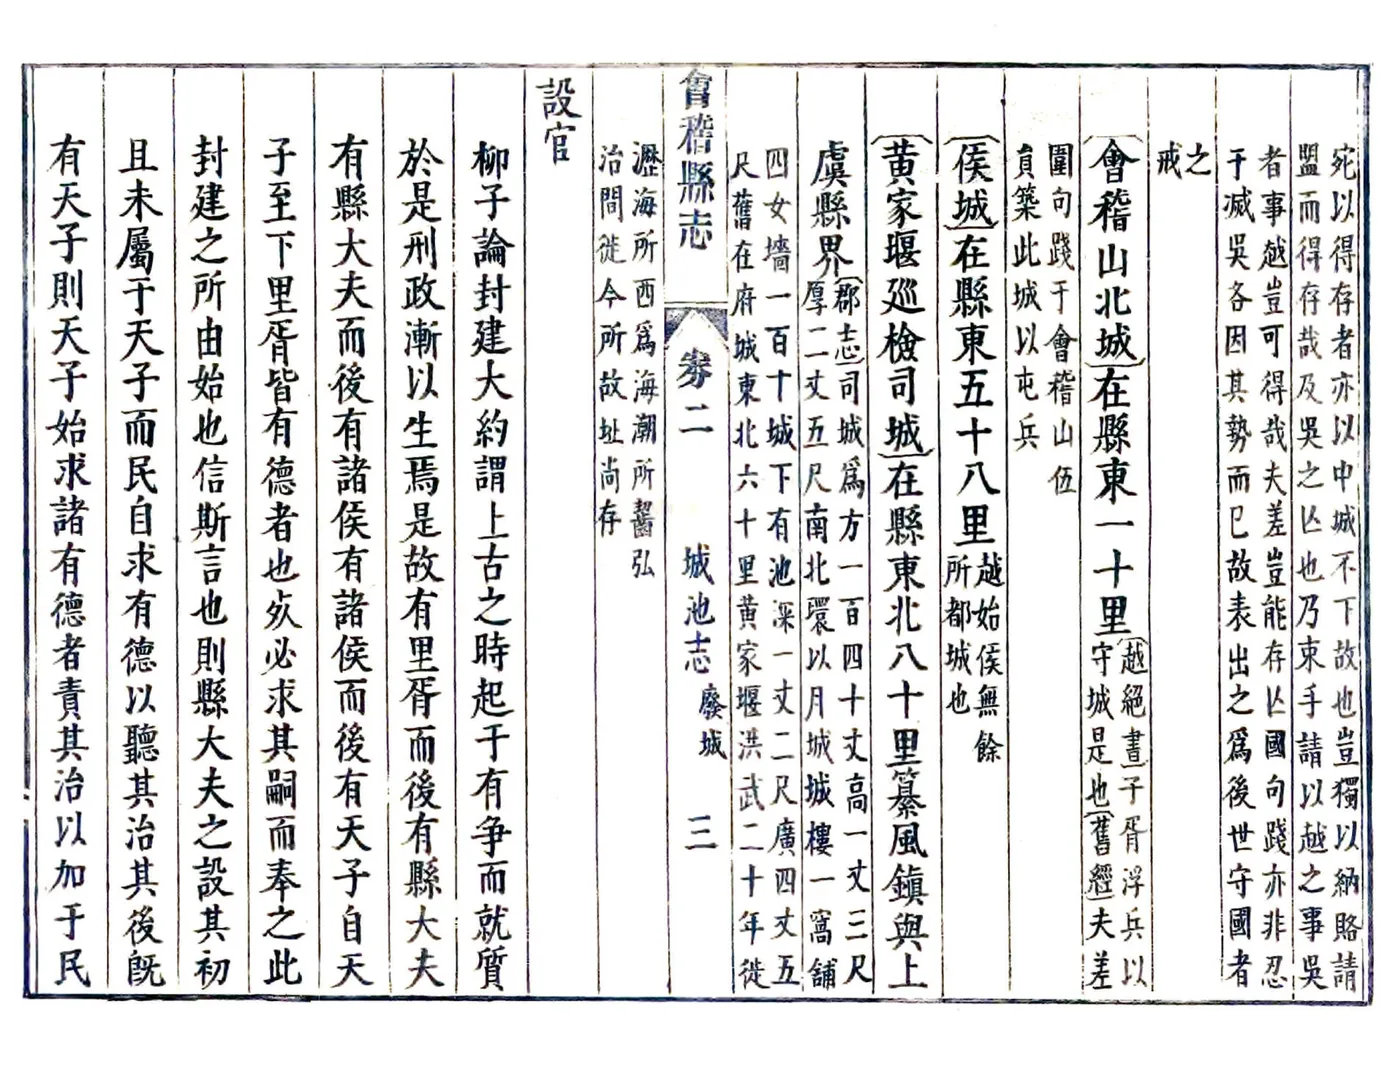 宛以得存者亦以中城不下故也豈獨以納賂請
盟而得存哉及吳之亾也乃束手請以越之事吳
者事越豈可得哉夫差豈能存亾國句踐亦非忍
于滅吳各因其勢而已故表出之爲後世守國者
之
戒
會稽山北城在縣東一十里
越絕晝子胥浮兵以
守城是也舊經夫差
圍句踐于會稽山伍
員築此城以屯兵
侯城在縣東五十八里
越始侯無餘
所都城也
黄家堰廵檢司城在縣東北八十里纂風鎭與上
虞縣界
郡志司城爲方一百四十丈高一丈三尺
厚二丈五尺南北環以月城城樓一窩舖
四女墻一百十城下有池深一丈二尺廣四丈五
尺舊在府城東北六十里黄家堰洪武二十年徙
瀝海所西爲海潮所齧弘
治間徙今所故址尚存
會稽縣志
卷二
城池志
廢城
三
設官
柳子論封建大約謂上古之時起于有爭而就質
於是刑政漸以生焉是故有里胥而後有縣大夫
有縣大夫而後有諸侯有諸侯而後有天子自天
子至下里胥皆有德者也㱠必求其嗣而奉之此
封建之所由始也信斯言也則縣大夫之設其初
且未屬于天子而民自求有德以聽其治其後旣
有天子則天子始求諸有德者責其治以加于民